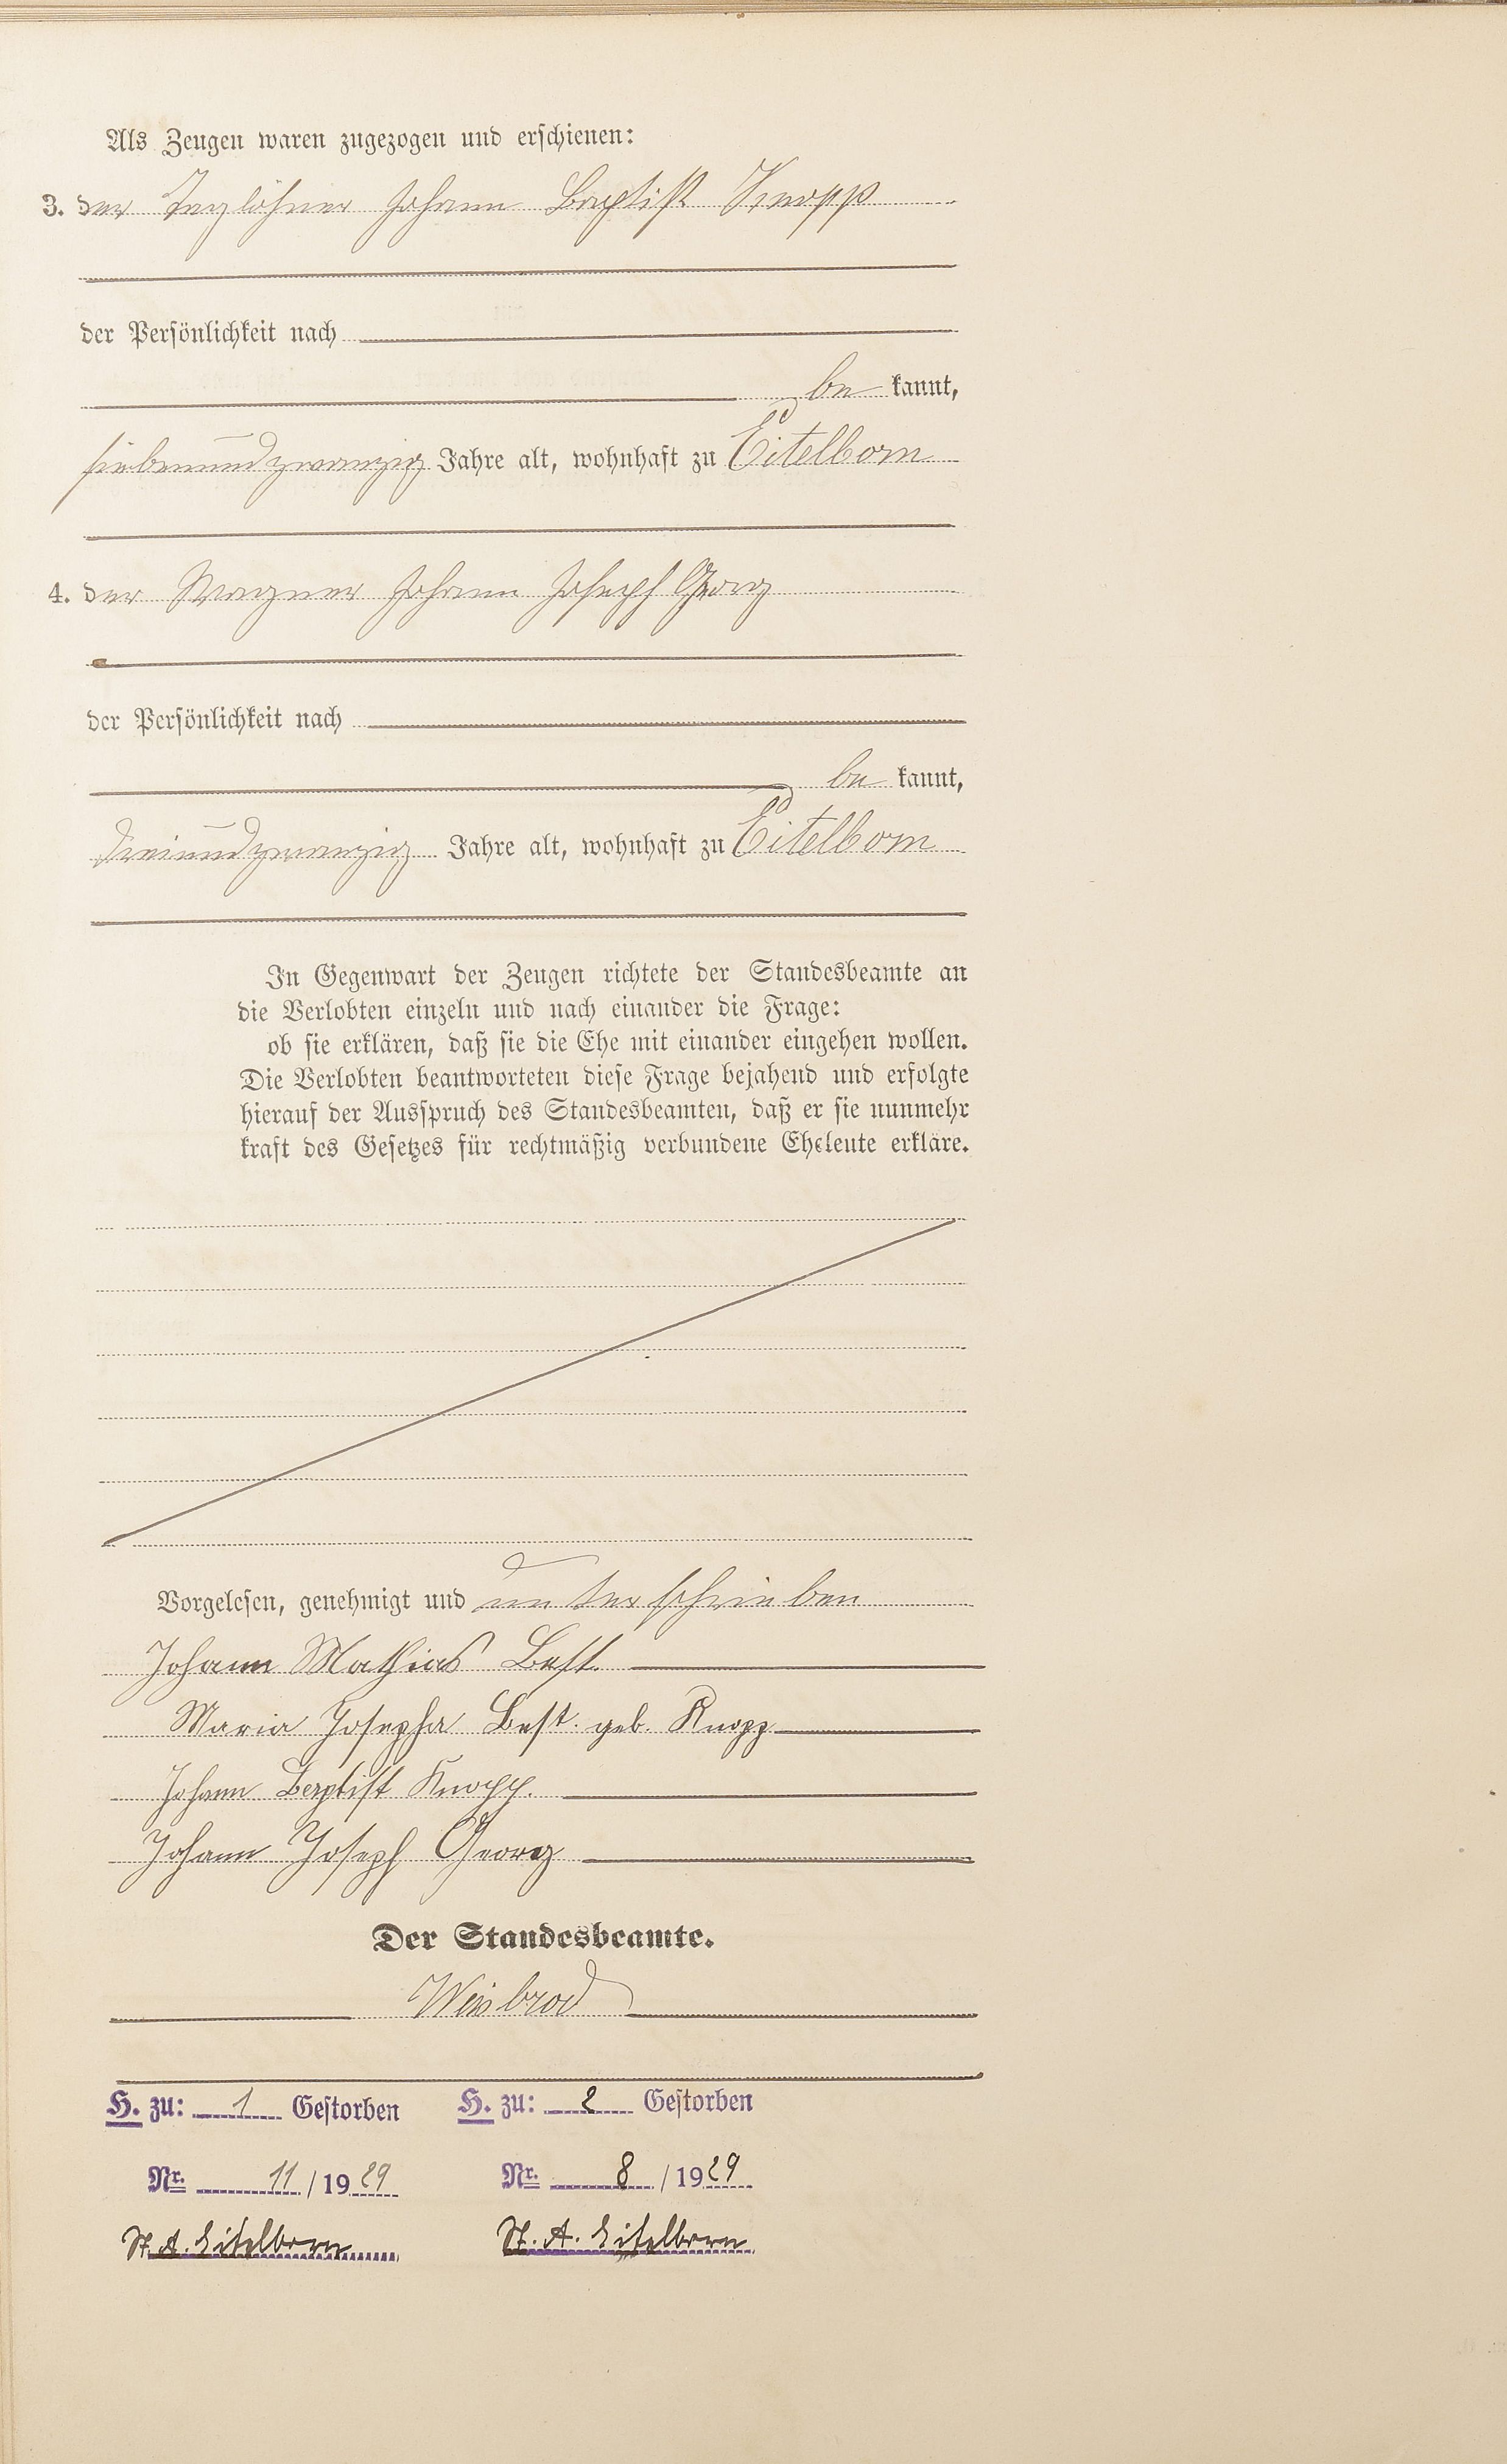 Als Zeugen waren zugezogen und erschienen:
3. der Taglöhner Johann Baptist Knopp
der Persönlichkeit nach
be kannt,
siebenundzwanzig Jahre alt, wohnhaft zu Eitelborn
4. der Wagner Johann Joseph Georg
der Persönlichkeit nach
be kannt,
dreiundzwanzig Jahre alt, wohnhaft zu Eitelborn
In Gegenwart der Zeugen richtete der Standesbeamte an
die Verlobten einzeln und nach einander die Frage:
ob sie erklären, daß sie die Ehe mit einander eingehen wollen.
Die Verlobten beantworteten diese Frage bejahend und erfolgte
hierauf der Ausspruch des Standesbeamten, daß er sie nunmehr
kraft des Gesetzes für rechtmäßig verbundene Eheleute erkläre.
Vorgelesen, genehmigt und unterschrieben
Johann Mathias Best.
Maria Josepha Best. geb. Knopp
Johann Baptist Knopp.
Johann Joseph Georg
Der Standesbeamte.
Weisbrod
H. zu: 1 Gestorben H. zu: 2 Gestorben
Nr. 11 / 1929 Nr. 8 / 1929
St. A. Eitelborn St. A. Eitelborn